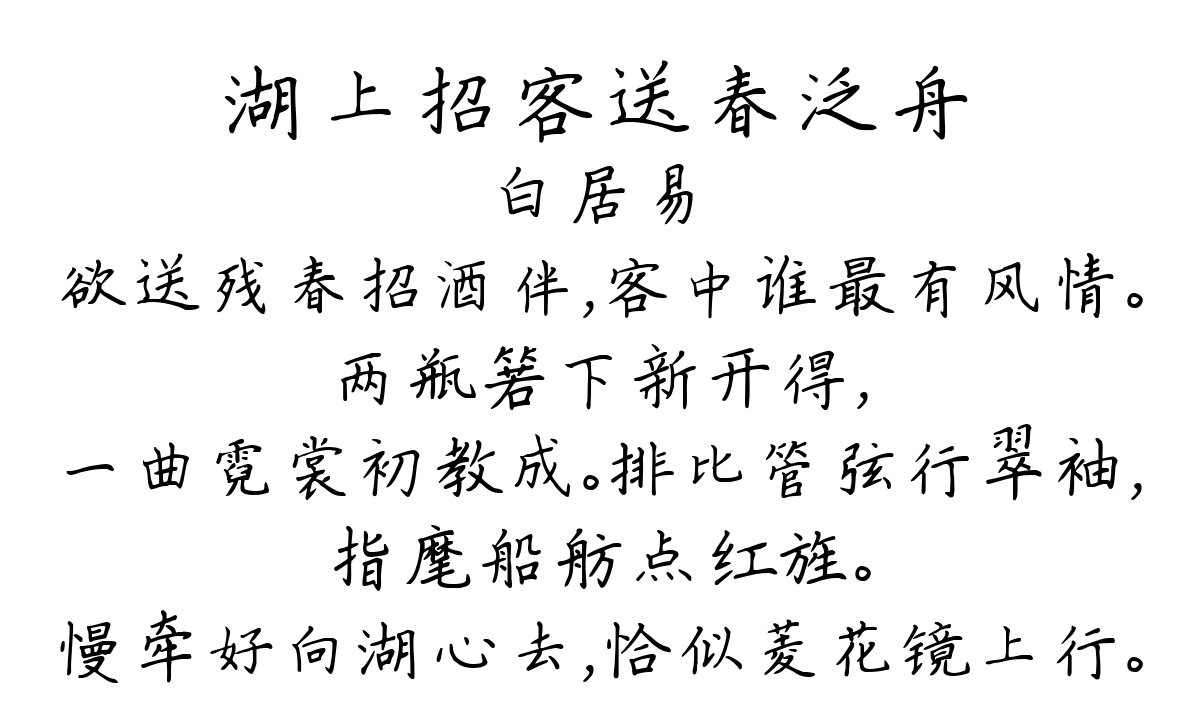 湖上招客送春泛舟
白居易
欲送残春招酒伴,客中谁最有风情。
两瓶箬下新开得,
一曲霓裳初教成。排比管弦行翠袖,
指麾船舫点红旌。
慢牵好向湖心去,恰似菱花镜上行。